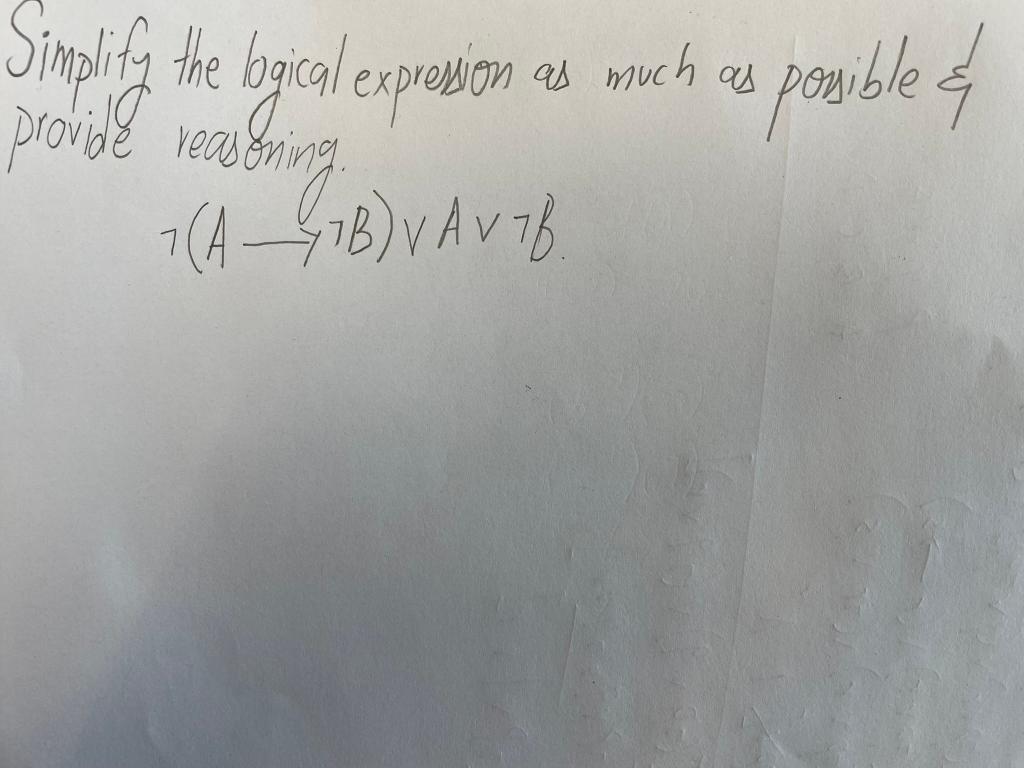 Simplify the logical expression as much as possible &
provide reasoning.
¬(A → ¬B) ∨ A ∨ ¬B.